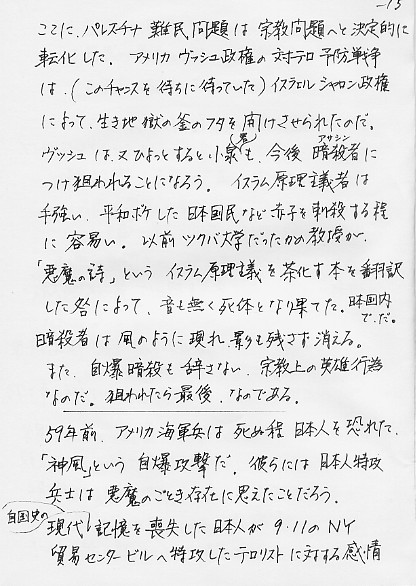 -15
ここに、パレスチナ難民問題は宗教問題へと決定的に
転化した。アメリカ ヴッシュ政権の対テロ予防戦争
は、(このチャンスを待ちに待っていた)イスラエル シャロン政権
によって、生き地獄の釜のフタを開けさせられたのだ。
ヴッシュは、又ひょっとすると小泉(君)も、今後 暗殺者(アサシン)に
つけ狙われることになろう。イスラム原理主義者は
手強い。平和ボケした日本国民など赤子を刺殺する程
に容易い。以前ツクバ大学だったかの教授が、
「悪魔の詩」という イスラム原理主義を茶化す本を翻訳
した咎によって、音も無く死体となり果てた。日本国内で、だ。
暗殺者は風のように現れ、影も残さず消える。
また、自爆暗殺も辞さない、宗教上の英雄行為
なのだ。狙われたら最後、なのである。
59年前、アメリカ海軍兵は死ぬ程日本人を恐れた、
「神風」という自爆攻撃だ。彼らには日本人特攻
兵士は悪魔のごとき存在に思えたことだろう。
自国史の現代記憶を喪失した日本人が9・11のNY
貿易センタービルへ特攻したテロリストに対する感情